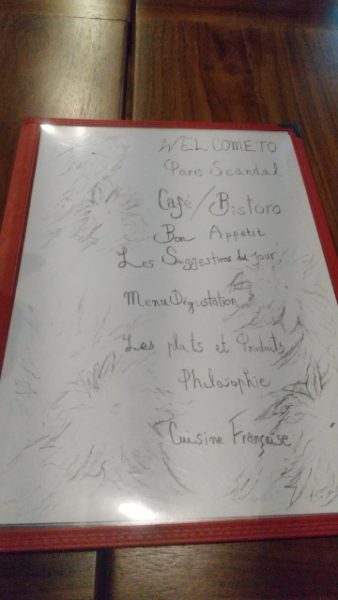 WELCOME TO
Paris Scandal
Café/Bistoro
Bon Appetit
Les Suggestions du Jour
Menu Dégustation
Les plats et Produits
Philosophie
Cuisine Française